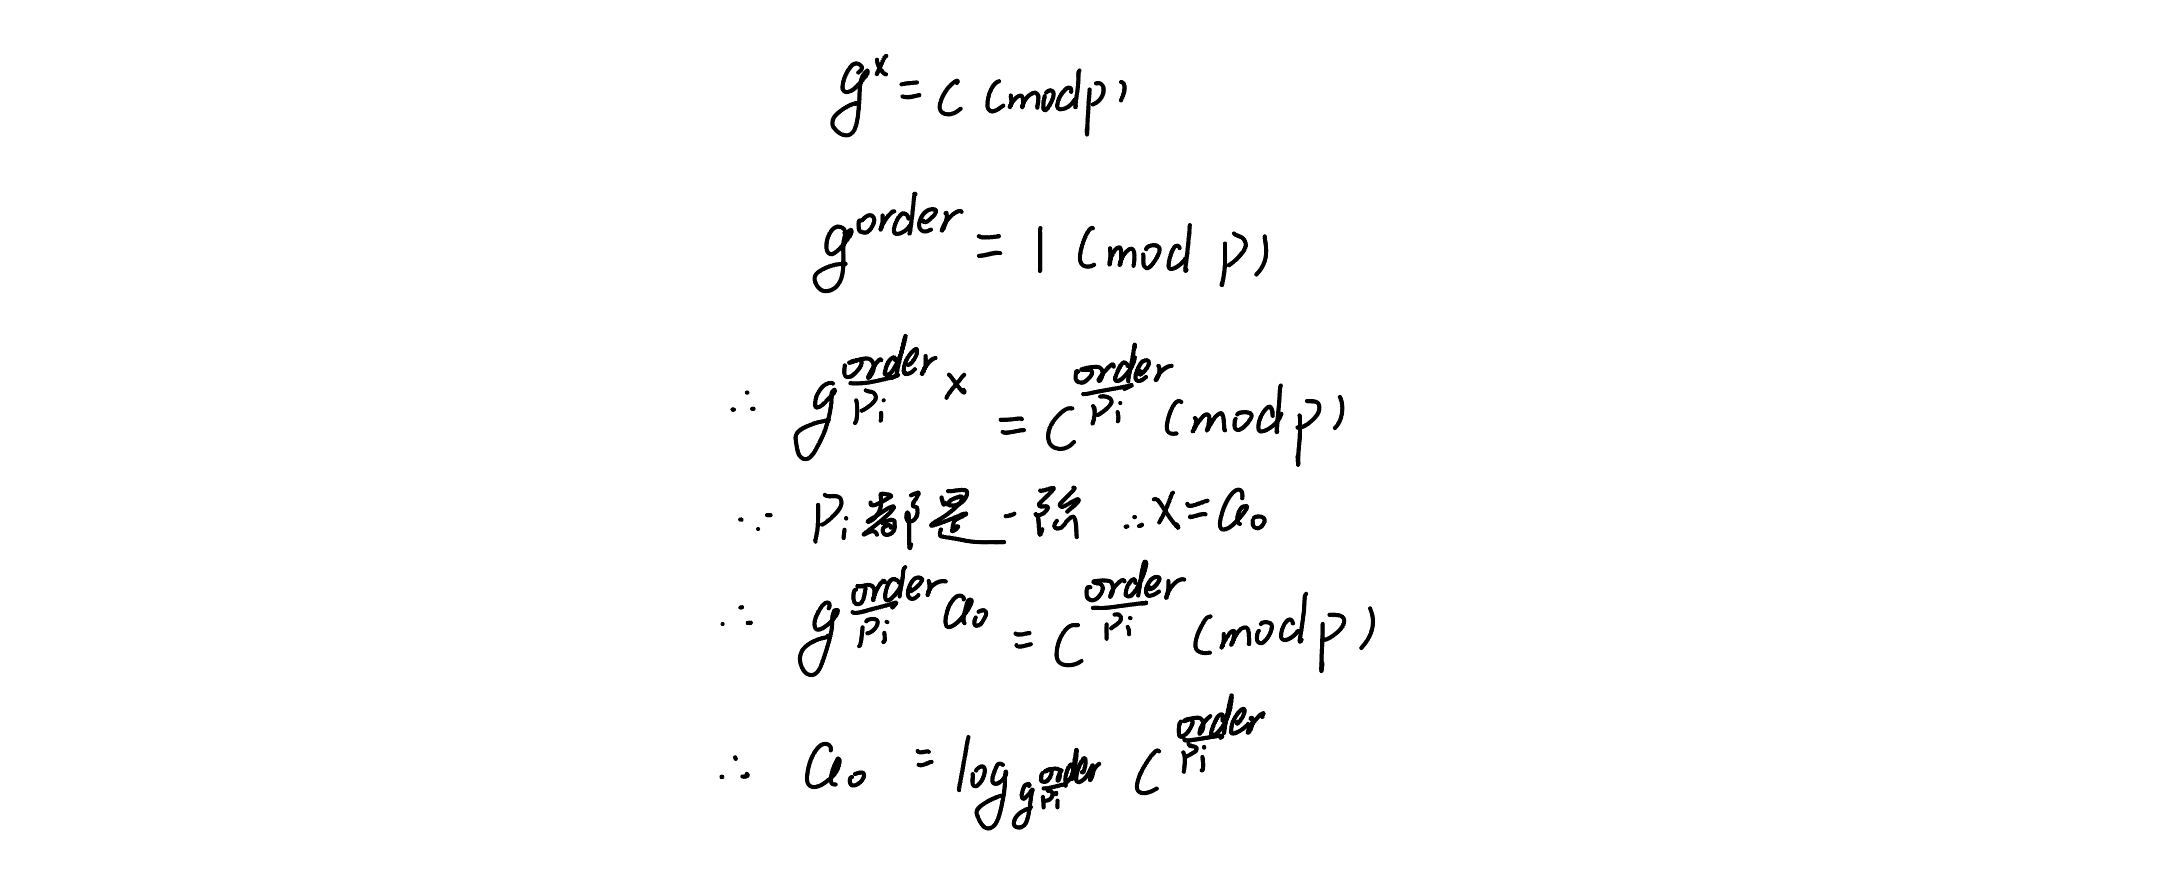 g^x = c (mod p)
g^order = 1 (mod p)
∴ g^(order/Pi x) = c^(order/Pi) (mod p)
∵ Pi都是一阶 ∴ x = a₀
∴ g^(order/Pi a₀) = c^(order/Pi) (mod p)
∴ a₀ = log_(g^(order/Pi)) c^(order/Pi)